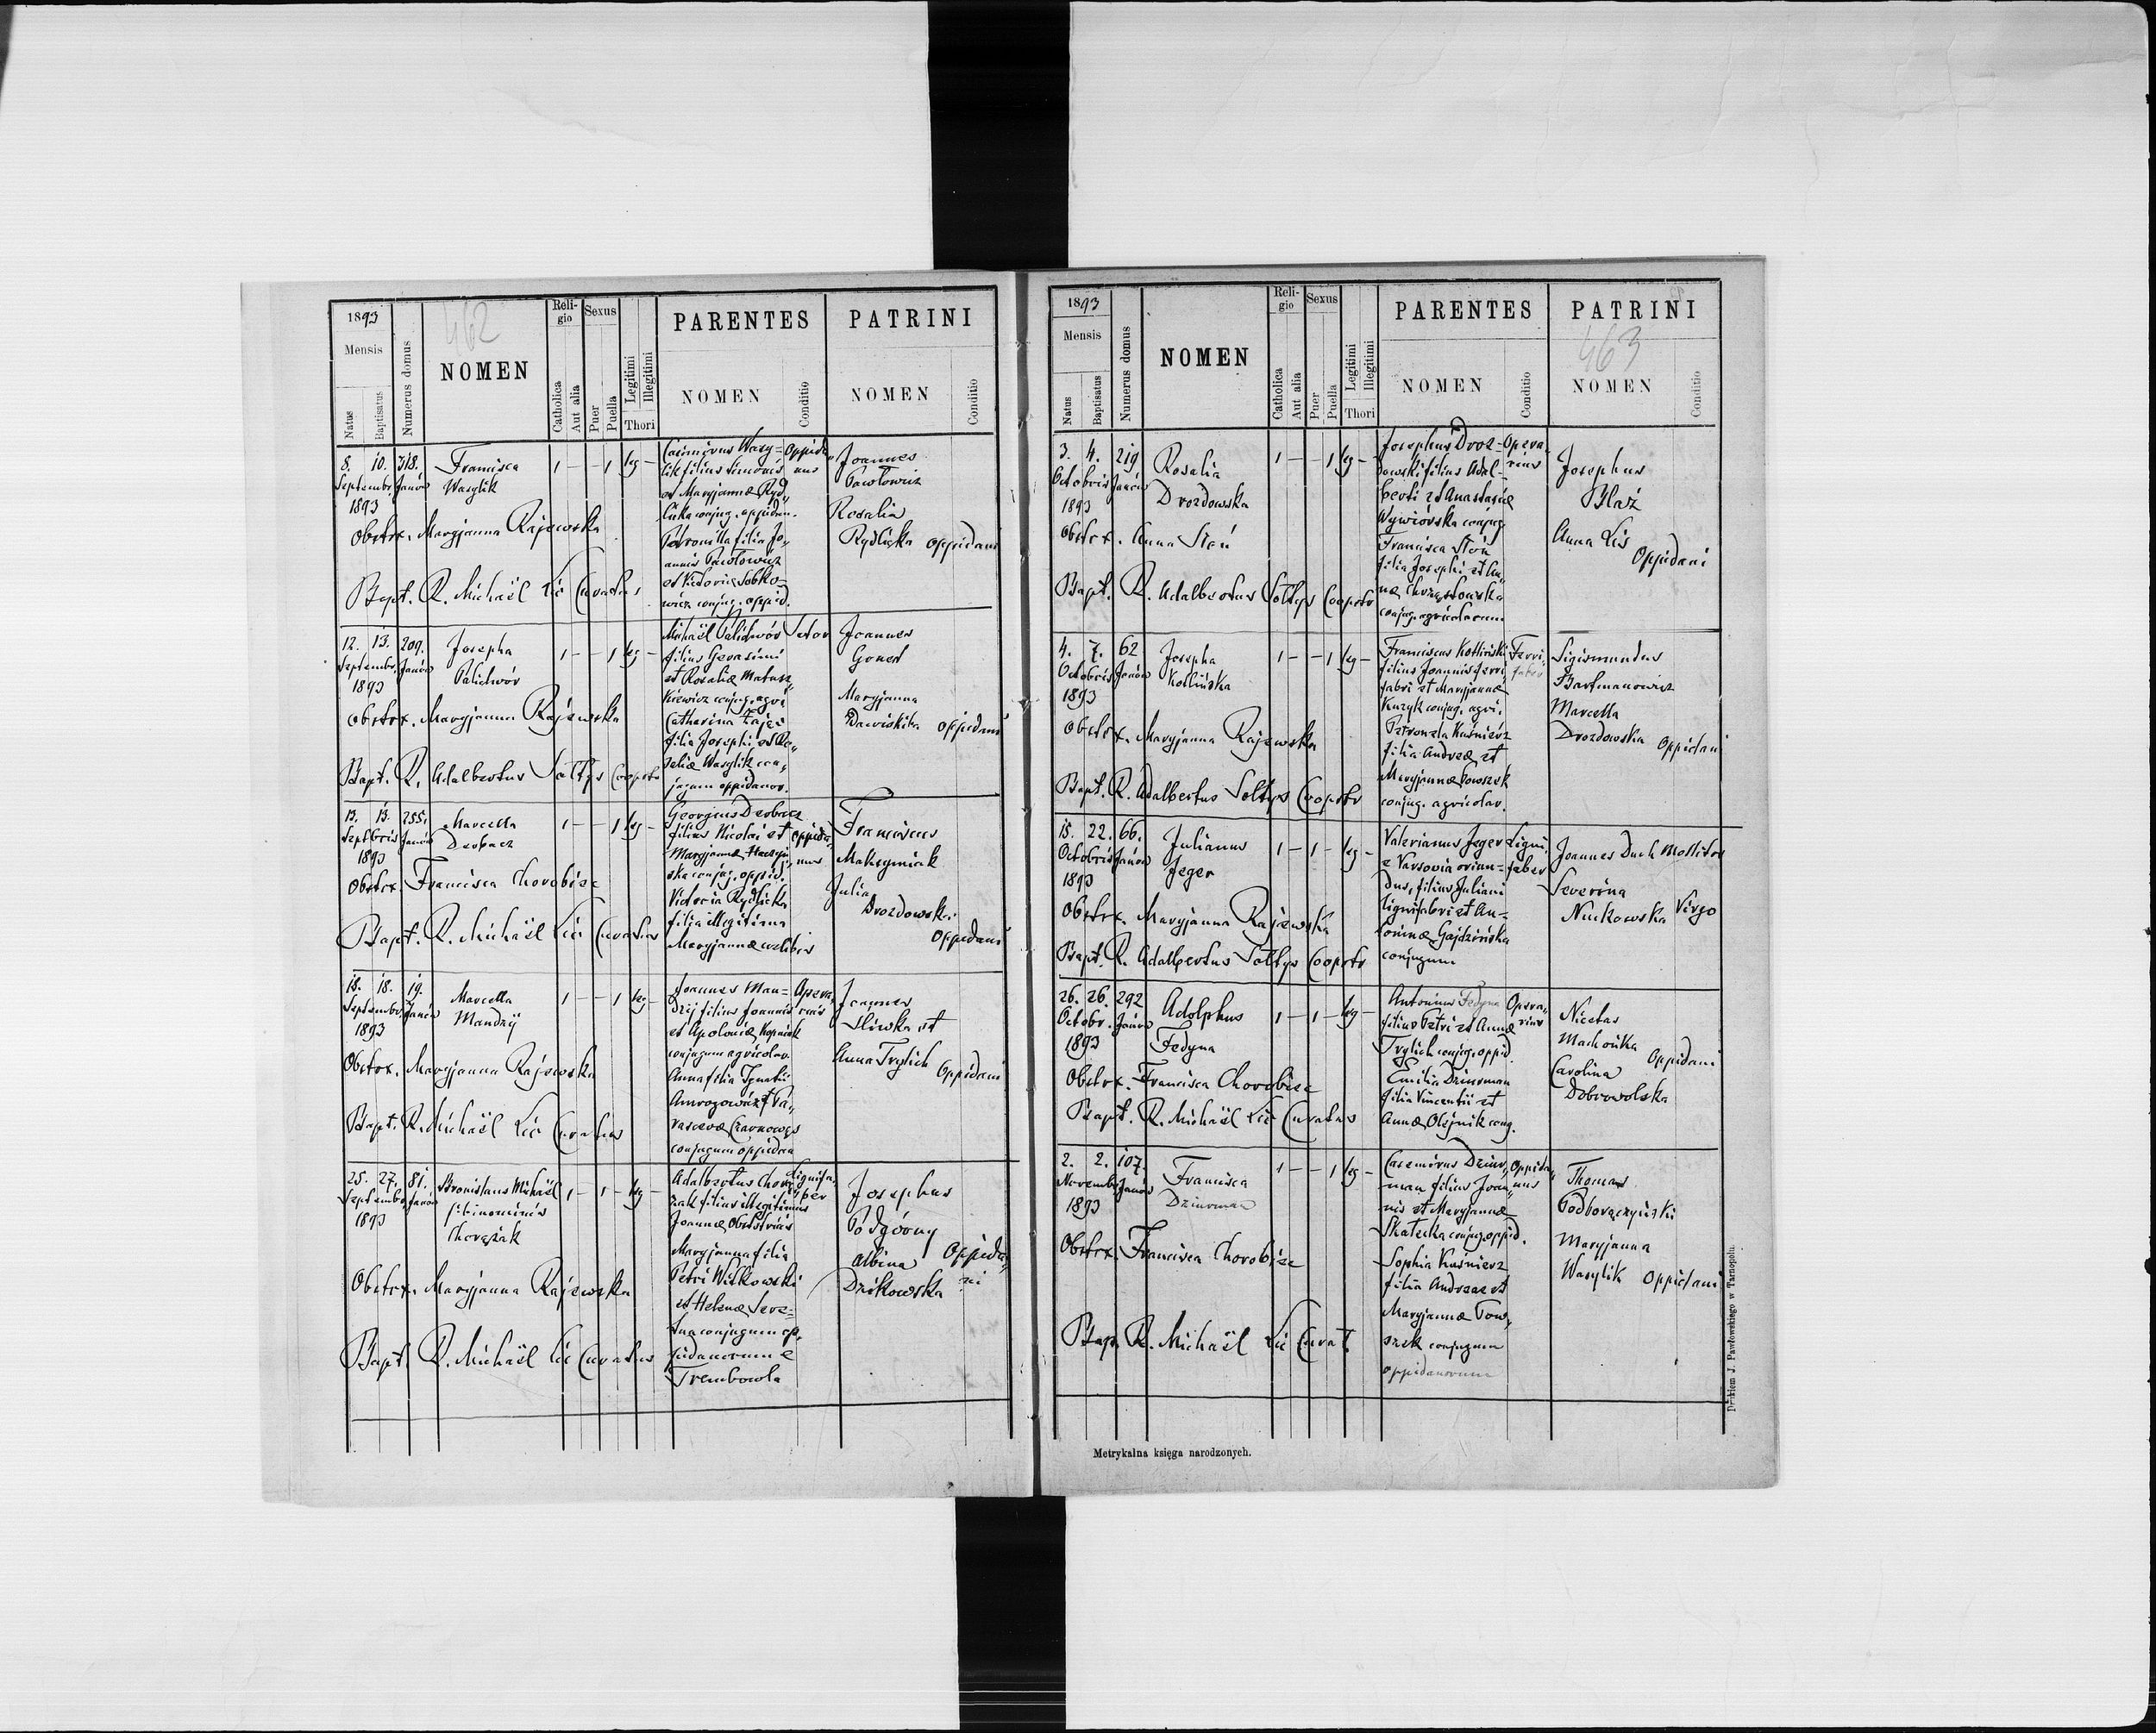 1893
Mensis
Natus
Baptisatus
Numerus domus
462
NOMEN
Reli-
gio
Catholica
Aut alia
Sexus
Puer
Puella
Legitimi
Illegitimi
Thori
PARENTES
NOMEN
Conditio
PATRINI
NOMEN
Conditio
8. 10. 318.
Septembr. Janów
1893
Francisca
Wasylik
1 — — 1 leg —
Casimirus Wasy=
lik filius Simonis
et Maryjannæ Ryd„
licka conjug. oppidan.
Petronilla filia Jo„
annis Pawłowicz
et Victoriæ Sobko-
wicz conjug. oppid.
Oppida„
nus
Joannes
Pawłowicz
Rosalia
Rydlicka Oppidani
Obstrx. Maryjanna Rajewska
Bapt. R. Michaël Lic Curatus
12. 13. 209.
Septembr. Janów
1893
Josepha
Palidwór
1 — — 1 leg —
Michaël Palidwór
filius Gerasimi
et Rosaliæ Matusz„
kiewicz conjug. agri
Catharina Zając
filia Josephi et Ro„
saliæ Wasylik con„
jugum oppidanor.
Sutor
Joannes
Maryjanna
Oppidani
Obstrx. Maryjanna Rajewska
Bapt. R. Adalbertus Sołtys Cooprtr
13. 13. 255.
Septbris Janów
1893
Marcella
Drobacz
1 — — 1 leg —
Georgius Drobacz
filius Nicolai et
Maryjannæ
ska conjug. oppid.
Victoria Rydlicka
filia illegitima
Maryjannæ cælibis
Oppida„
nus
Franciscus
Maksymiak
Julia
Drozdowska
Oppidani
Obstrx. Francisca Chorobisz
Bapt. R. Michaël Lic Curatus
18. 18. 19.
Septembr. Janów
1893
Marcella
Mandzij
1 — — 1 leg —
Joannes Man=
dzij filius Joannis
et Apoloniæ
conjugum agricolar.
Anna filia Ignatii
et Pa„
rascevæ
conjugum oppidan
Opera„
rius
Joannes
Sliwka et
Anna Trylich Oppidani
Obstrx. Maryjanna Rajewska
Bapt. R. Michaël Lic Curatus
25. 27. 81.
Septembr. Janów
1893
Bronislaus Michaël
(binominis
Chorążak
1 — 1 — leg —
Adalbertus Chorą„
żak filius illegitimus
Joannæ Obstetricis
Maryjanna filia
Petri Witkowski
et Helenæ
conjugum op„
pidanorum e
Trembowla
Lignifa„
ber
Josephus
Podgórny
Albina
Dzikowska
Oppida„
ni
Obstrx. Maryjanna Rajewska
Bapt. R. Michaël Lic Curatus
1893
Mensis
Natus
Baptisatus
Numerus domus
NOMEN
Reli-
gio
Catholica
Aut alia
Sexus
Puer
Puella
Legitimi
Illegitimi
Thori
PARENTES
NOMEN
Conditio
PATRINI
463
NOMEN
Conditio
3. 4. 219
Octobris Janów
1893
Rosalia
Drozdowska
1 — — 1 leg —
Josephus Droz=
dowski filius Adal-
berti et Anastasiæ
Wywiórska conjug.
Francisca Stoń
filia Josephi et An„
næ Chrząstowska
conjug. agricolarum
Opera„
rius
Josephus
Blaż
Anna Lis
Oppidani
Obstrx. Anna Stoń
Bapt. R. Adalbertus Sołtys Cooprtr
4. 7. 62
Octobris Janów
1893
Josepha
Kotlińska
1 — — 1 leg —
Franciscus Kotliński
filius Joannis ferri
fabri et Maryjannæ
Kuzyk conjug. agri.
Petronela Kuśnierz
filia Andreæ et
Maryjannæ Towszek
conjug. agricolar.
Ferri„
faber
Sigismundus
Bartmanowicz
Marcella
Drozdowska Oppidani
Obstrx. Maryjanna Rajewska
Bapt. R. Adalbertus Sołtys Cooprtr
18. 22. 66.
Octobris Janów
1893
Julianus
Jeger
1 — 1 — leg —
Valerianus Jeger
e Varsovia oriun=
dus, filius Juliani
lignifabri et An=
toninæ Gajdzińska
conjugum
Ligni„
faber
Joannes Duch Mollitor
Severina
Nuckowska Virgo
Obstrx. Maryjanna Rajewska
Bapt. R. Adalbertus Sołtys Cooprtr
26. 26. 292
Octobr. Janów
1893
Adolphus
Fedyna
1 — 1 — leg —
Antonius Fedyna
filius Petri et Annæ
Trylich conjug. oppid.
Emilia Dziurman
filia Vincentii et
Annæ Olejnik conj.
Opera„
rius
Nicetas
Machońka
Carolina
Dobrowolska
Oppidani
Obstrx. Francisca Chorobisz
Bapt. R. Michaël Lic Curatus
2. 2. 107.
Novembr. Janów
1893
Francisca
Dziurman
1 — — 1 leg —
Casemirus Dziur„
man filius Joan„
nis et Maryjannæ
Skałecka conjug. oppid.
Sophia Kuśnierz
filia Andreæ et
Maryjannæ Tow„
szek conjugum
oppidanorum
Oppida„
nus
Thomas
Podhorączyński
Maryjanna
Wasylik Oppidani
Obstrx. Francisca Chorobisz
Bap. R. Michaël Lic Curat.
Metrykalna księga narodzonych.
Drukiem J. Pawłowskiego w Tarnopolu.